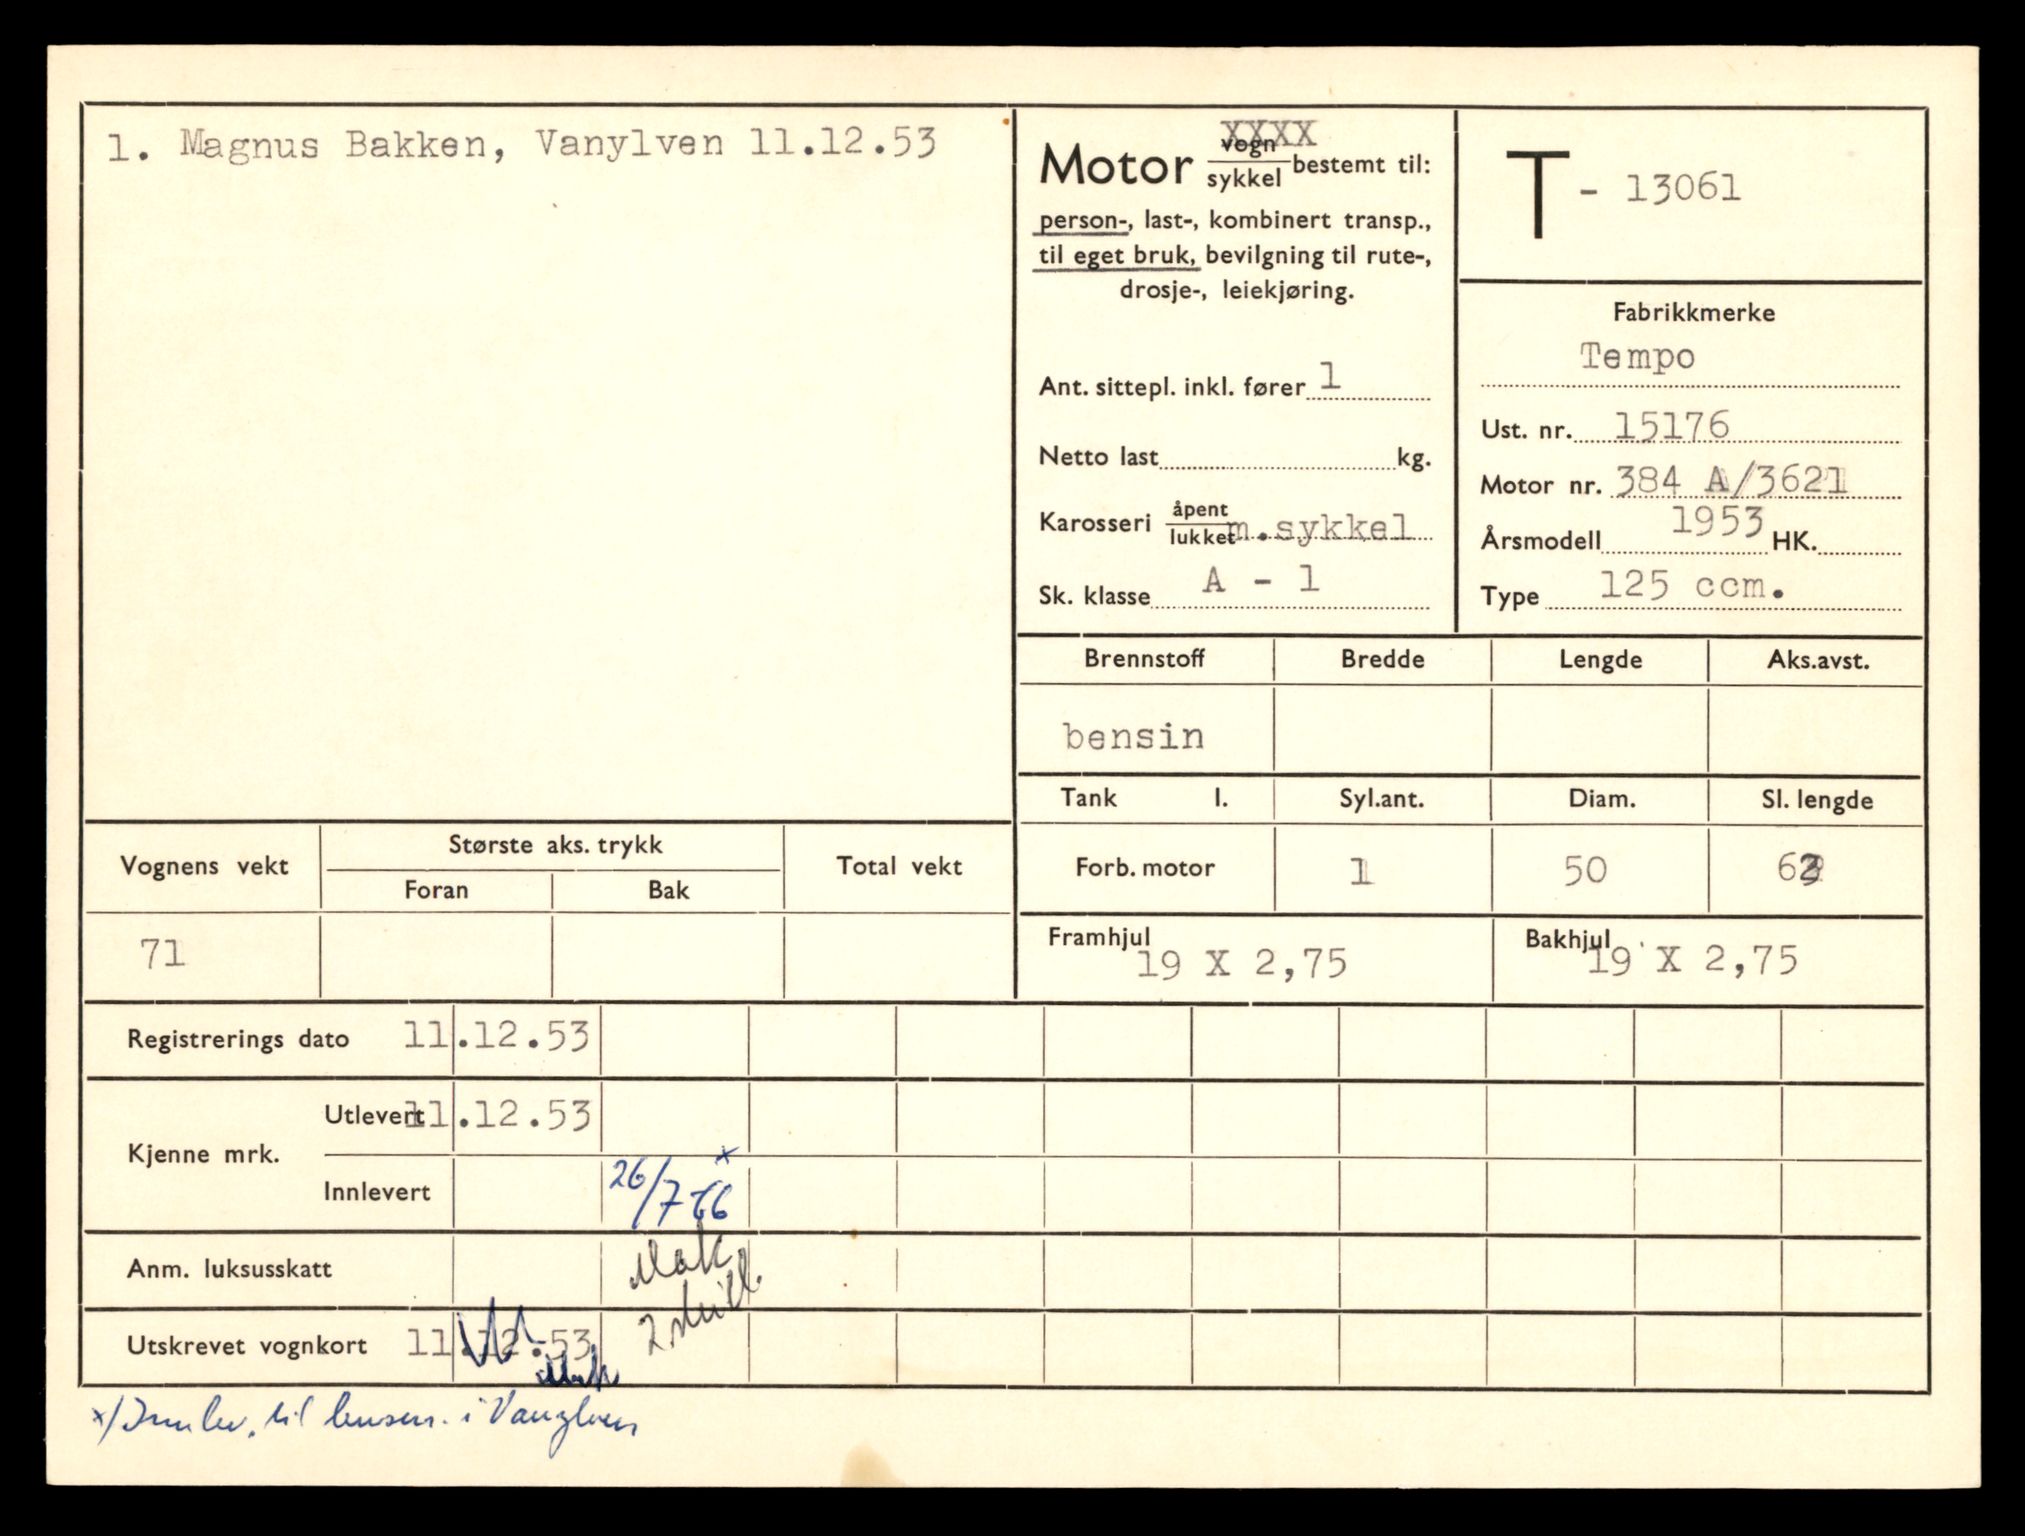 1. Magnus Bakken, Vanylven 11.12.53
Motor vogn XXXX
sykkel bestemt til:
person-, last-, kombinert transp.,
til eget bruk, bevilgning til rute-,
drosje-, leiekjøring.
Ant. sittepl. inkl. fører 1
Netto last kg.
Karosseri åpent
lukket m.sykkel
Sk. klasse A - 1
T - 13061
Fabrikkmerke
Tempo
Ust. nr. 15176
Motor nr. 384 A/3621
Årsmodell 1953 HK.
Type 125 ccm.
Brennstoff Bredde Lengde Aks.avst.
bensin
Tank l. Syl.ant. Diam. Sl. lengde
Forb. motor 1 50
Framhjul 19 X 2,75 Bakhjul 19 X 2,75
Vognens vekt Største aks. trykk Total vekt
Foran Bak
71
Registrerings dato 11.12.53
Kjenne mrk. Utlevert 11.12.53
Innlevert 26/7 66 x
Anm. luksusskatt
2 skilt.
Utskrevet vognkort 11.12.53
x/ Innlev. til lensm. i Vanylven